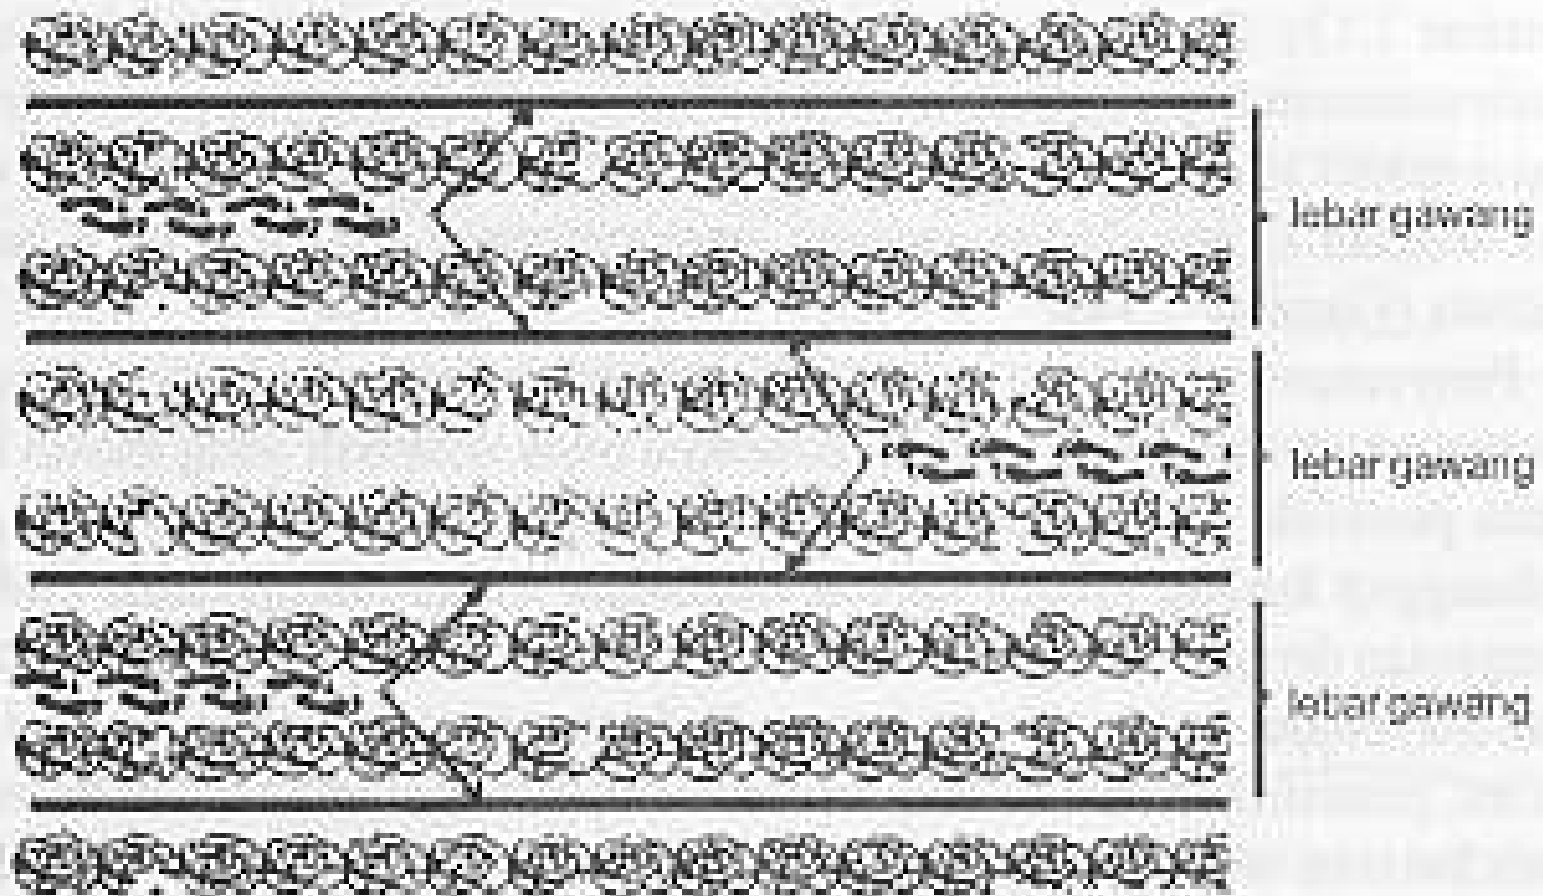 lebar gawang
lebar gawang
lebar gawang